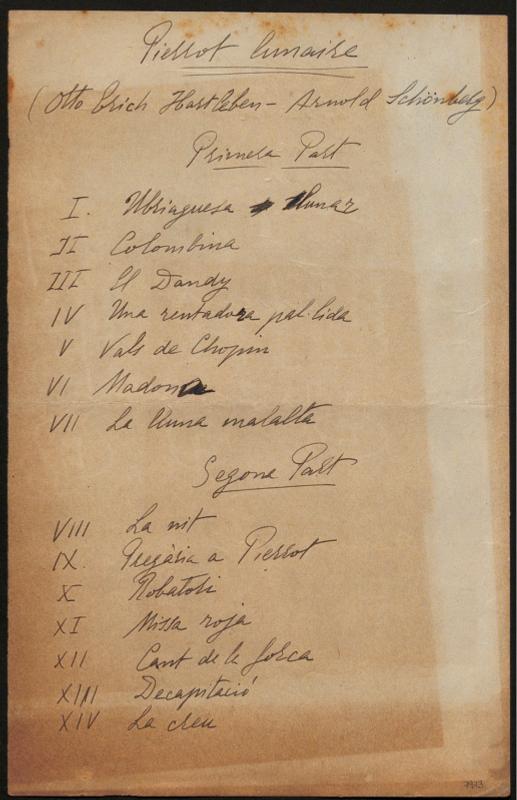 Pierrot lunaire
(Otto Erich Hartleben - Arnold Schönberg)
Primera Part
I. Ubriaguesa llunar
II Colombina
III El Dandy
IV Una rentadora pal·lida
V Vals de Chopin
VI Madona
VII La lluna malalta
Segona Part
VIII La nit
IX. Pregària a Pierrot
X Robatori
XI Missa roja
XII Cant de la forca
XIII Decapitació
XIV La creu
7973